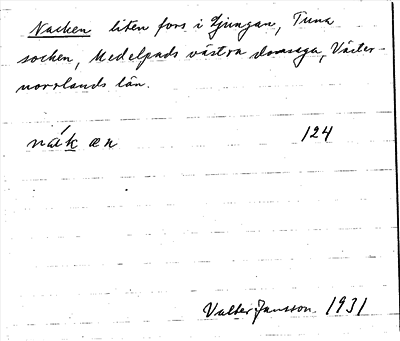 Nacken liten fors i Ljungan, Tuna
socken, Medelpads västra domsaga, Väster-
norrlands län.
nák æn 124
Valter Jansson 1931